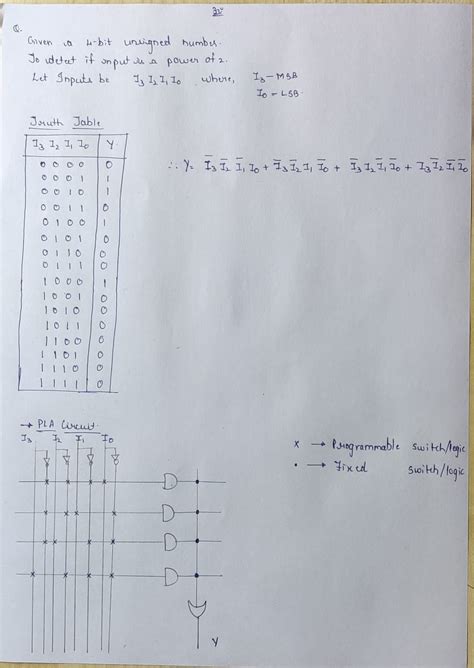 32
Q.
Given is 4-bit unsigned number.
To detect if input is a power of 2.
Let Inputs be I3 I2 I1 I0 where, I3 - MSB
I0 - LSB
Truth Table
I3 I2 I1 I0 Y
0 0 0 0 0
0 0 0 1 1
0 0 1 0 1
0 0 1 1 0
0 1 0 0 1
0 1 0 1 0
0 1 1 0 0
0 1 1 1 0
1 0 0 0 1
1 0 0 1 0
1 0 1 0 0
1 0 1 1 0
1 1 0 0 0
1 1 0 1 0
1 1 1 0 0
1 1 1 1 0
∴ Y= I̅3 I̅2 I̅1 I0 + I̅3 I̅2 I1 I̅0 + I̅3 I2 I̅1 I̅0 + I3 I̅2 I̅1 I̅0
→ PLA Circuit
I3 I2 I1 I0
x → Programmable switch/logic
• → Fixed switch/logic
Y